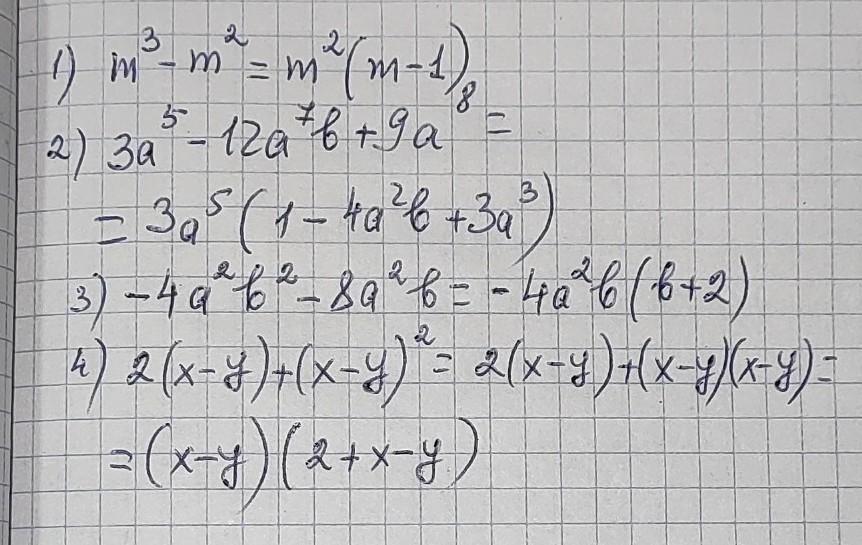 1) m³ - m² = m²(m - 1)
2) 3a⁵ - 12a⁷b + 9a⁸ =
= 3a⁵(1 - 4a²b + 3a³)
3) -4a²b² - 8a²b = -4a²b(b+2)
4) 2(x-y)+(x-y)² = 2(x-y)+(x-y)(x-y)=
=(x-y)(2+x-y)